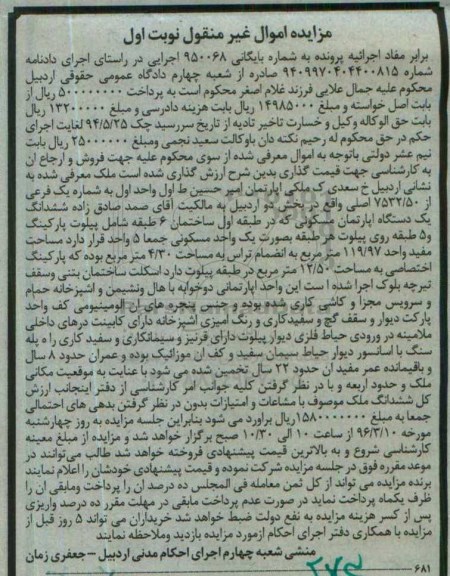 مزایده اموال غیر منقول نوبت اول
برابر مفاد اجرائیه پرونده به شماره بایگانی ۹۵۰۰۶۸ اجرایی در راستای اجرای دادنامه
شماره ۹۴۰۹۹۷۰۴۰۴۴۰۰۸۱۵ صادره از شعبه چهارم دادگاه عمومی حقوقی اردبیل
محکوم علیه جمال علایی فرزند غلام اصغر محکوم است به پرداخت ۵۰۰۰۰۰۰۰۰ ریال از
بابت اصل خواسته و مبلغ ۱۴۹۸۵۰۰۰ ریال بابت هزینه دادرسی و مبلغ ۱۳۲۰۰۰۰۰ ریال
بابت حق الوکاله وکیل و خسارت تاخیر تادیه از تاریخ سررسید چک ۹۴/۵/۲۵ لغایت اجرای
حکم در حق محکوم له رحیم نکته دان باوکالت سعید نجمی ومبلغ ۲۵۰۰۰۰۰۰ ریال بابت
نیم عشر دولتی باتوجه به اموال معرفی شده از سوی محکوم علیه جهت فروش و ارجاع ان
به کارشناسی جهت قیمت گذاری بدین شرح ارزش گذاری شده است ملک معرفی شده به
نشانی اردبیل خ سعدی ک ملکی اپارتمان امیر حسین ط اول واحد اول به شماره یک فرعی
از ۷۵۳۲/۵۰ اصلی واقع در بخش دو اردبیل به مالکیت اقای صمد صادق زاده ششدانگ
یک دستگاه اپارتمان مسکونی که در طبقه اول ساختمان ۶ طبقه شامل پیلوت پارکینگ
و۵ طبقه روی پیلوت هر طبقه بصورت یک واحد مسکونی جمعا ۵ واحد قرار دارد مساحت
مفید واحد ۱۱۹/۹۷ متر مربع به انضمام تراس به مساحت ۴/۳۰ متر مربع بوده که پارکینگ
اختصاصی به مساحت ۱۲/۵۰ متر مربع در طبقه پیلوت دارد اسکلت ساختمان بتنی وسقف
تیرچه بلوک اجرا شده است این واحد اپارتمانی دوخوابه با هال ونشیمن و اشپزخانه حمام
و سرویس مجزا و کاشی کاری شده بوده و جنس پنجره های ان الومینیومی کف واحد
پارکت دیوار و سقف گچ و سفیدکاری و رنگ امیزی اشپزخانه دارای کابینت درهای داخلی
ملامینه در ورودی حیاط فلزی دیوار پیلوت دارای قرنیز و سیمانکاری و سفید کاری را ه پله
سنگ با اسانسور دیوار حیاط سیمان سفید و کف ان موزائیک بوده و عمران حدود ۸ سال
و باقیمانده عمر مفید ان حدود ۲۲ سال تخمین شده می شود با عنایت به موقعیت مکانی
ملک و حدود اربعه و با در نظر گرفتن کلیه جوانب امر کارشناسی از دفتر اینجانب ارزش
کل ششدانگ ملک موصوف با مشاعات و امتیازات بدون در نظر گرفتن بدهی های احتمالی
جمعا به مبلغ ۱۵۸۰۰۰۰۰۰۰ریال براورد می شود بنابراین جلسه مزایده به روز چهارشنبه
مورخه ۹۶/۳/۱۰ از ساعت ۱۰ الی ۱۰/۳۰ صبح برگزار خواهد شد و مزایده از مبلغ معینه
کارشناسی شروع و به بالاترین قیمت پیشنهادی فروخته خواهد شد طالب می‌توانند در
موعد مقرره فوق در جلسه مزایده شرکت نموده و قیمت پیشنهادی خودشان را اعلام نمایند
برنده مزایده می تواند از کل ثمن معامله فی المجلس ده درصد ان را پرداخت ومابقی ان را
ظرف یکماه پرداخت نماید در صورت عدم پرداخت مابقی در مهلت مقرر ده درصد واریزی
پس از کسر هزینه مزایده به نفع دولت ضبط خواهد شد خریداران می تواند ۵ روز قبل از
مزایده با همکاری دفتر اجرای احکام ازمورد مزایده بازدید وملاحظه نمایند
منشی شعبه چهارم اجرای احکام مدنی اردبیل – جعفری زمان
۶۸۱